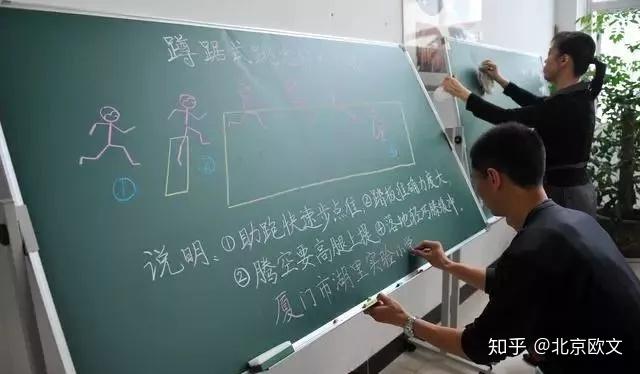 蹲踞式跳
①
②
说明:①助跑快速步点准,②踏板准确力度大,
③腾空要高腿上提④落地轻巧膝缓冲.
厦门市湖里实验小
知乎 @北京欧文